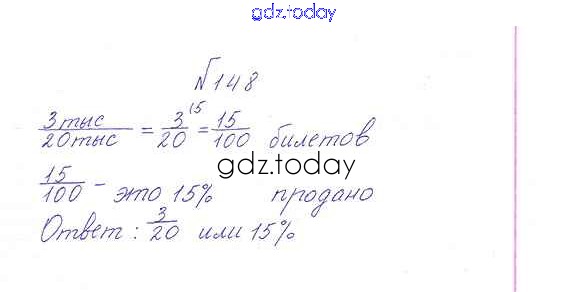 gdz.today
№148
3 тыс/20 тыс = 3/20 15 = 15/100 билетов
gdz.today
15/100 - это 15% продано
Ответ: 3/20 или 15%